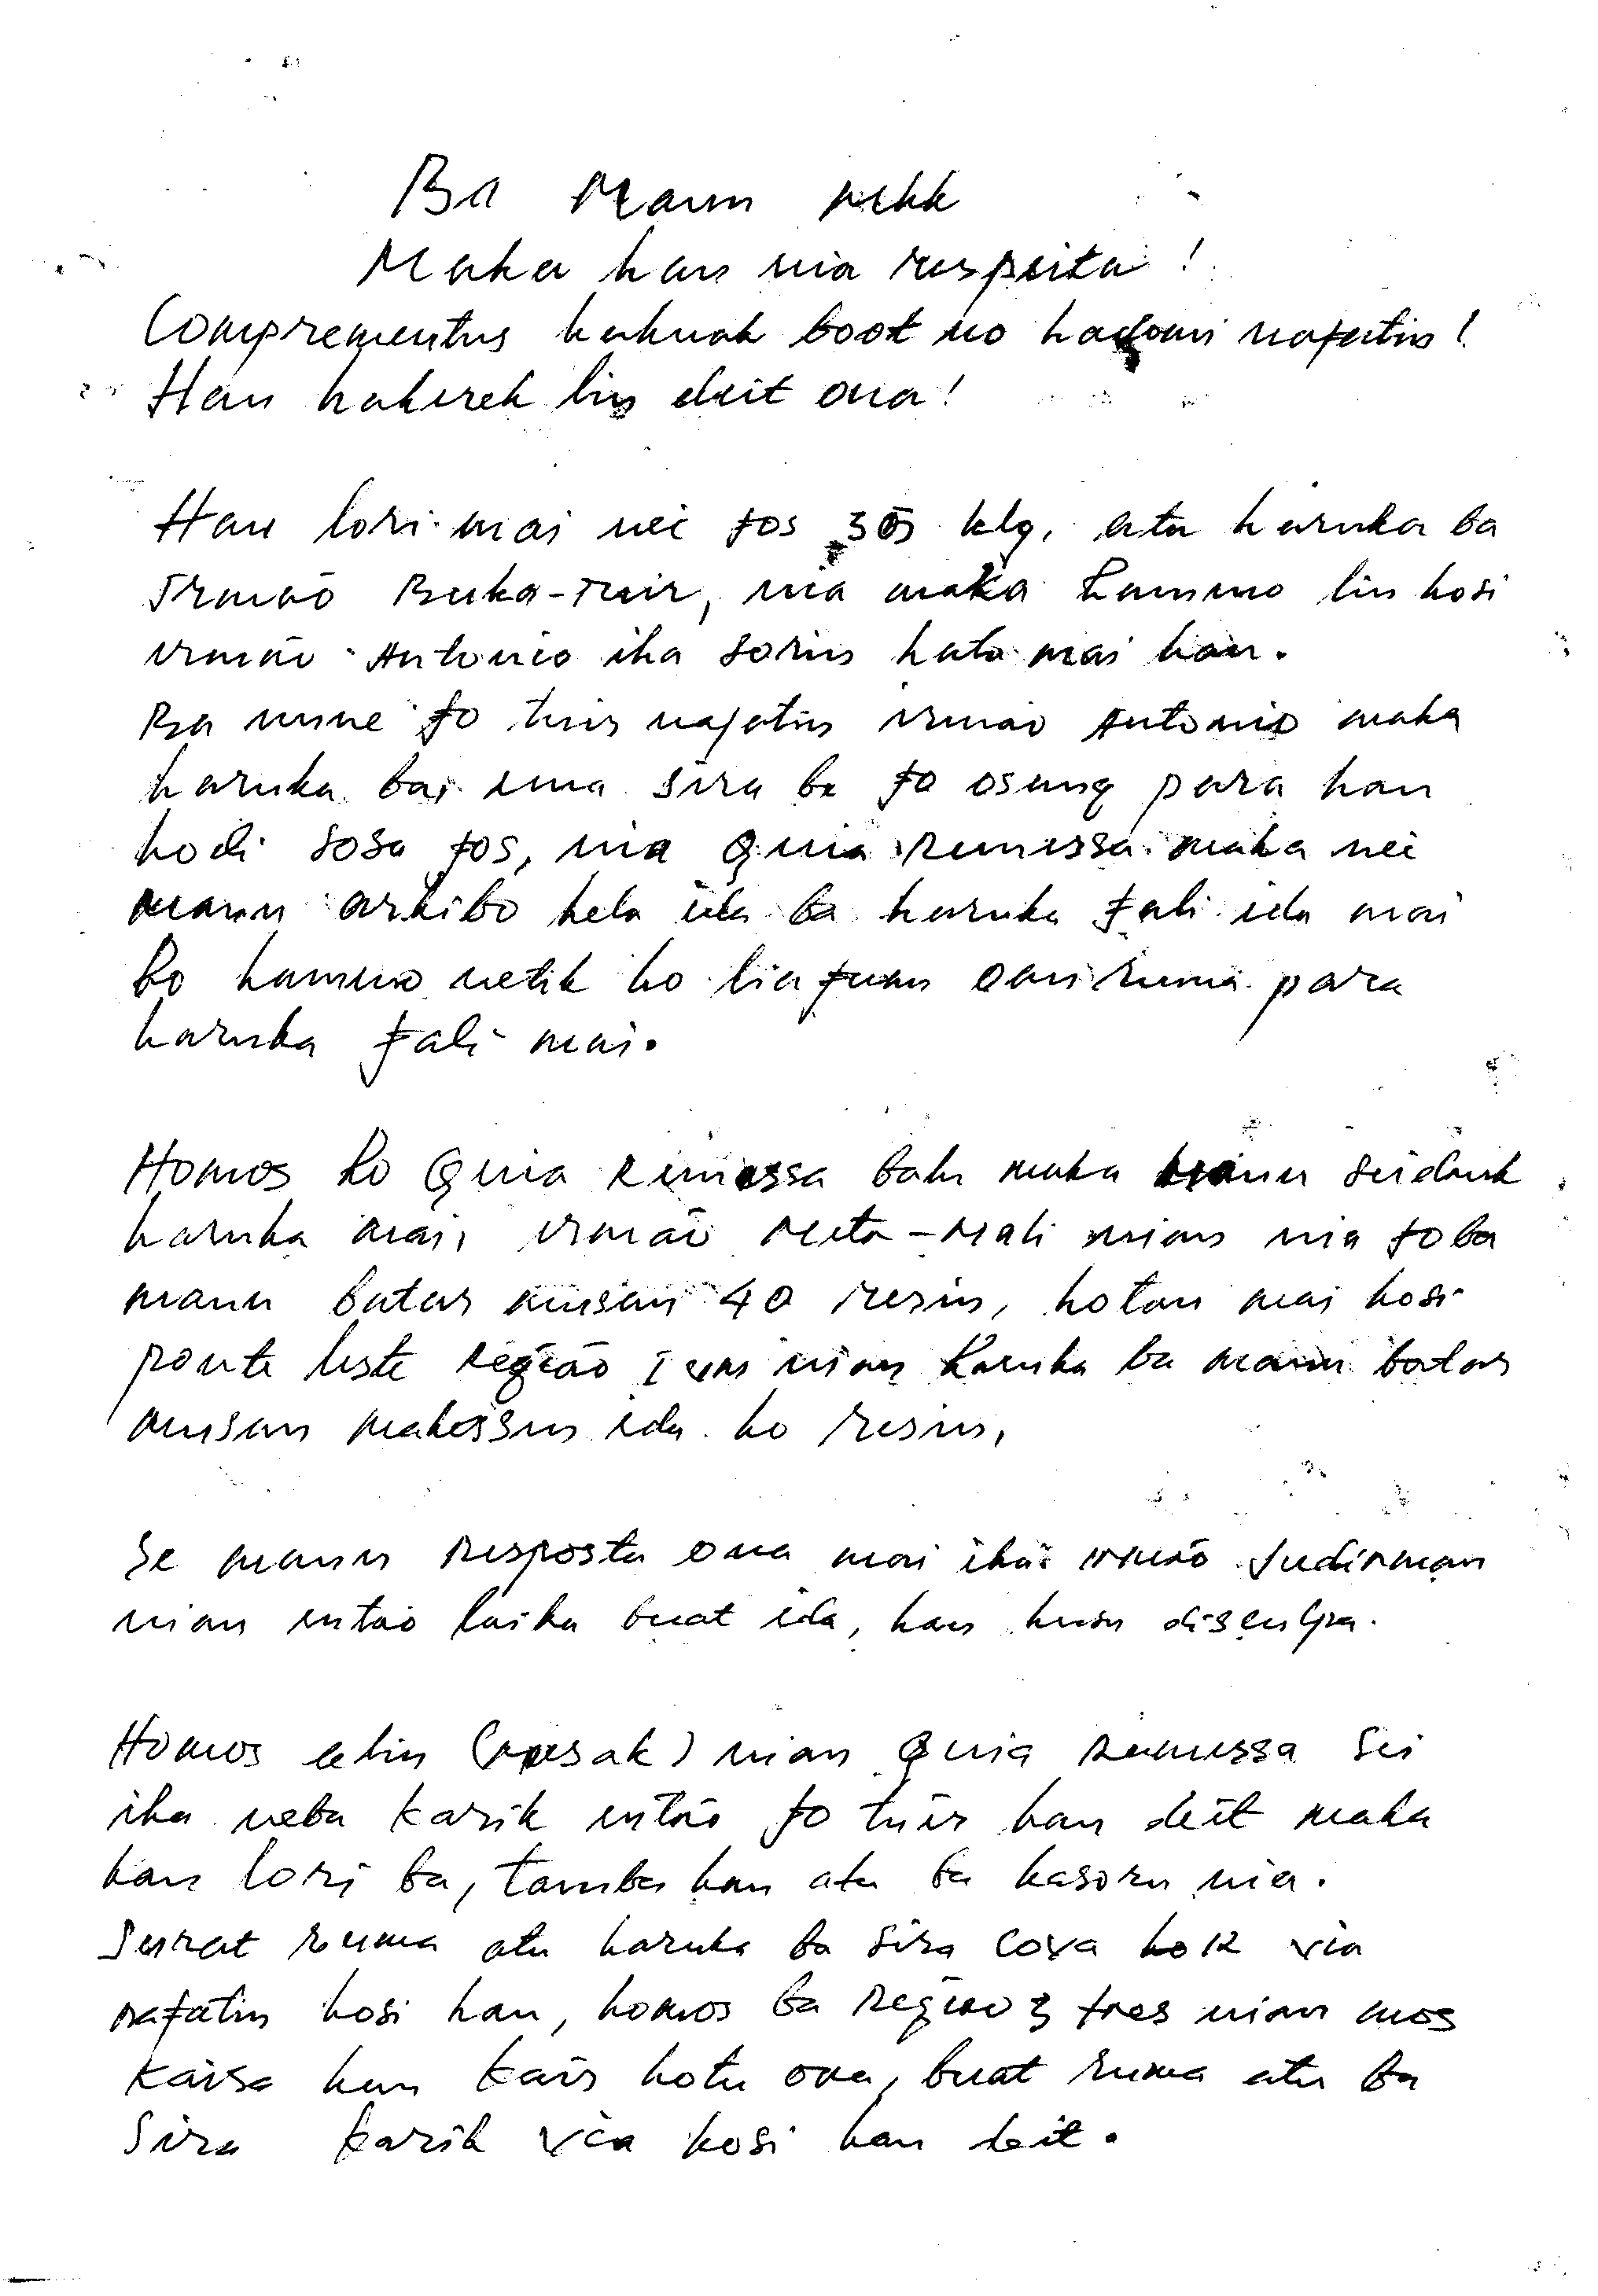 Ba Maun
Maka hau nia respeita!
Comprementus hakuak boot no hadomi nafatin!
Hau hakerek lin deit ona!
Hau lori mai nei fos 35 klg, atu haruka ba
Irmão Buka-Tuir, nia maka hamuno lin hosi
irmão Antonio iha sorin hato mai hau.
Ba nune fo tuir nafatin irmao Antonio maka
haruka bai ema sira be fo osang para hau
hodi sosa fos, nia Guia Remessa maka nei
maun arkibo hela ida ba haruka fali ida mai
ho hamuno netik ho lia fuan oan ruma para
haruka fali mai.
Homos ho Guia Remessa balu maka maun seidauk
haruka mai, irmão Meta-Mali nian nia fo ba
maun batar musan 40 resin, hotan mai hosi
ponte leste Região I nian haruka ba maun batar
musan makossun ida ho resin,
Se maun resposta ona mai iha irmão Sudirman
nian entao laika buat ida, hau husu disculpa.
Homos elin (resak) nian Guia Remessa sei
iha neba karik então fo tuir hau deit maka
hau lori ba, tamba hau atu ba hasoru nia.
Surat ruma atu haruka ba sira cova ho R via
nafatin hosi hau, homos ba região 3 tres nian mos
kaisa hau kais hotu ona, buat ruma atu ba
Sira karik via hosi hau deit.